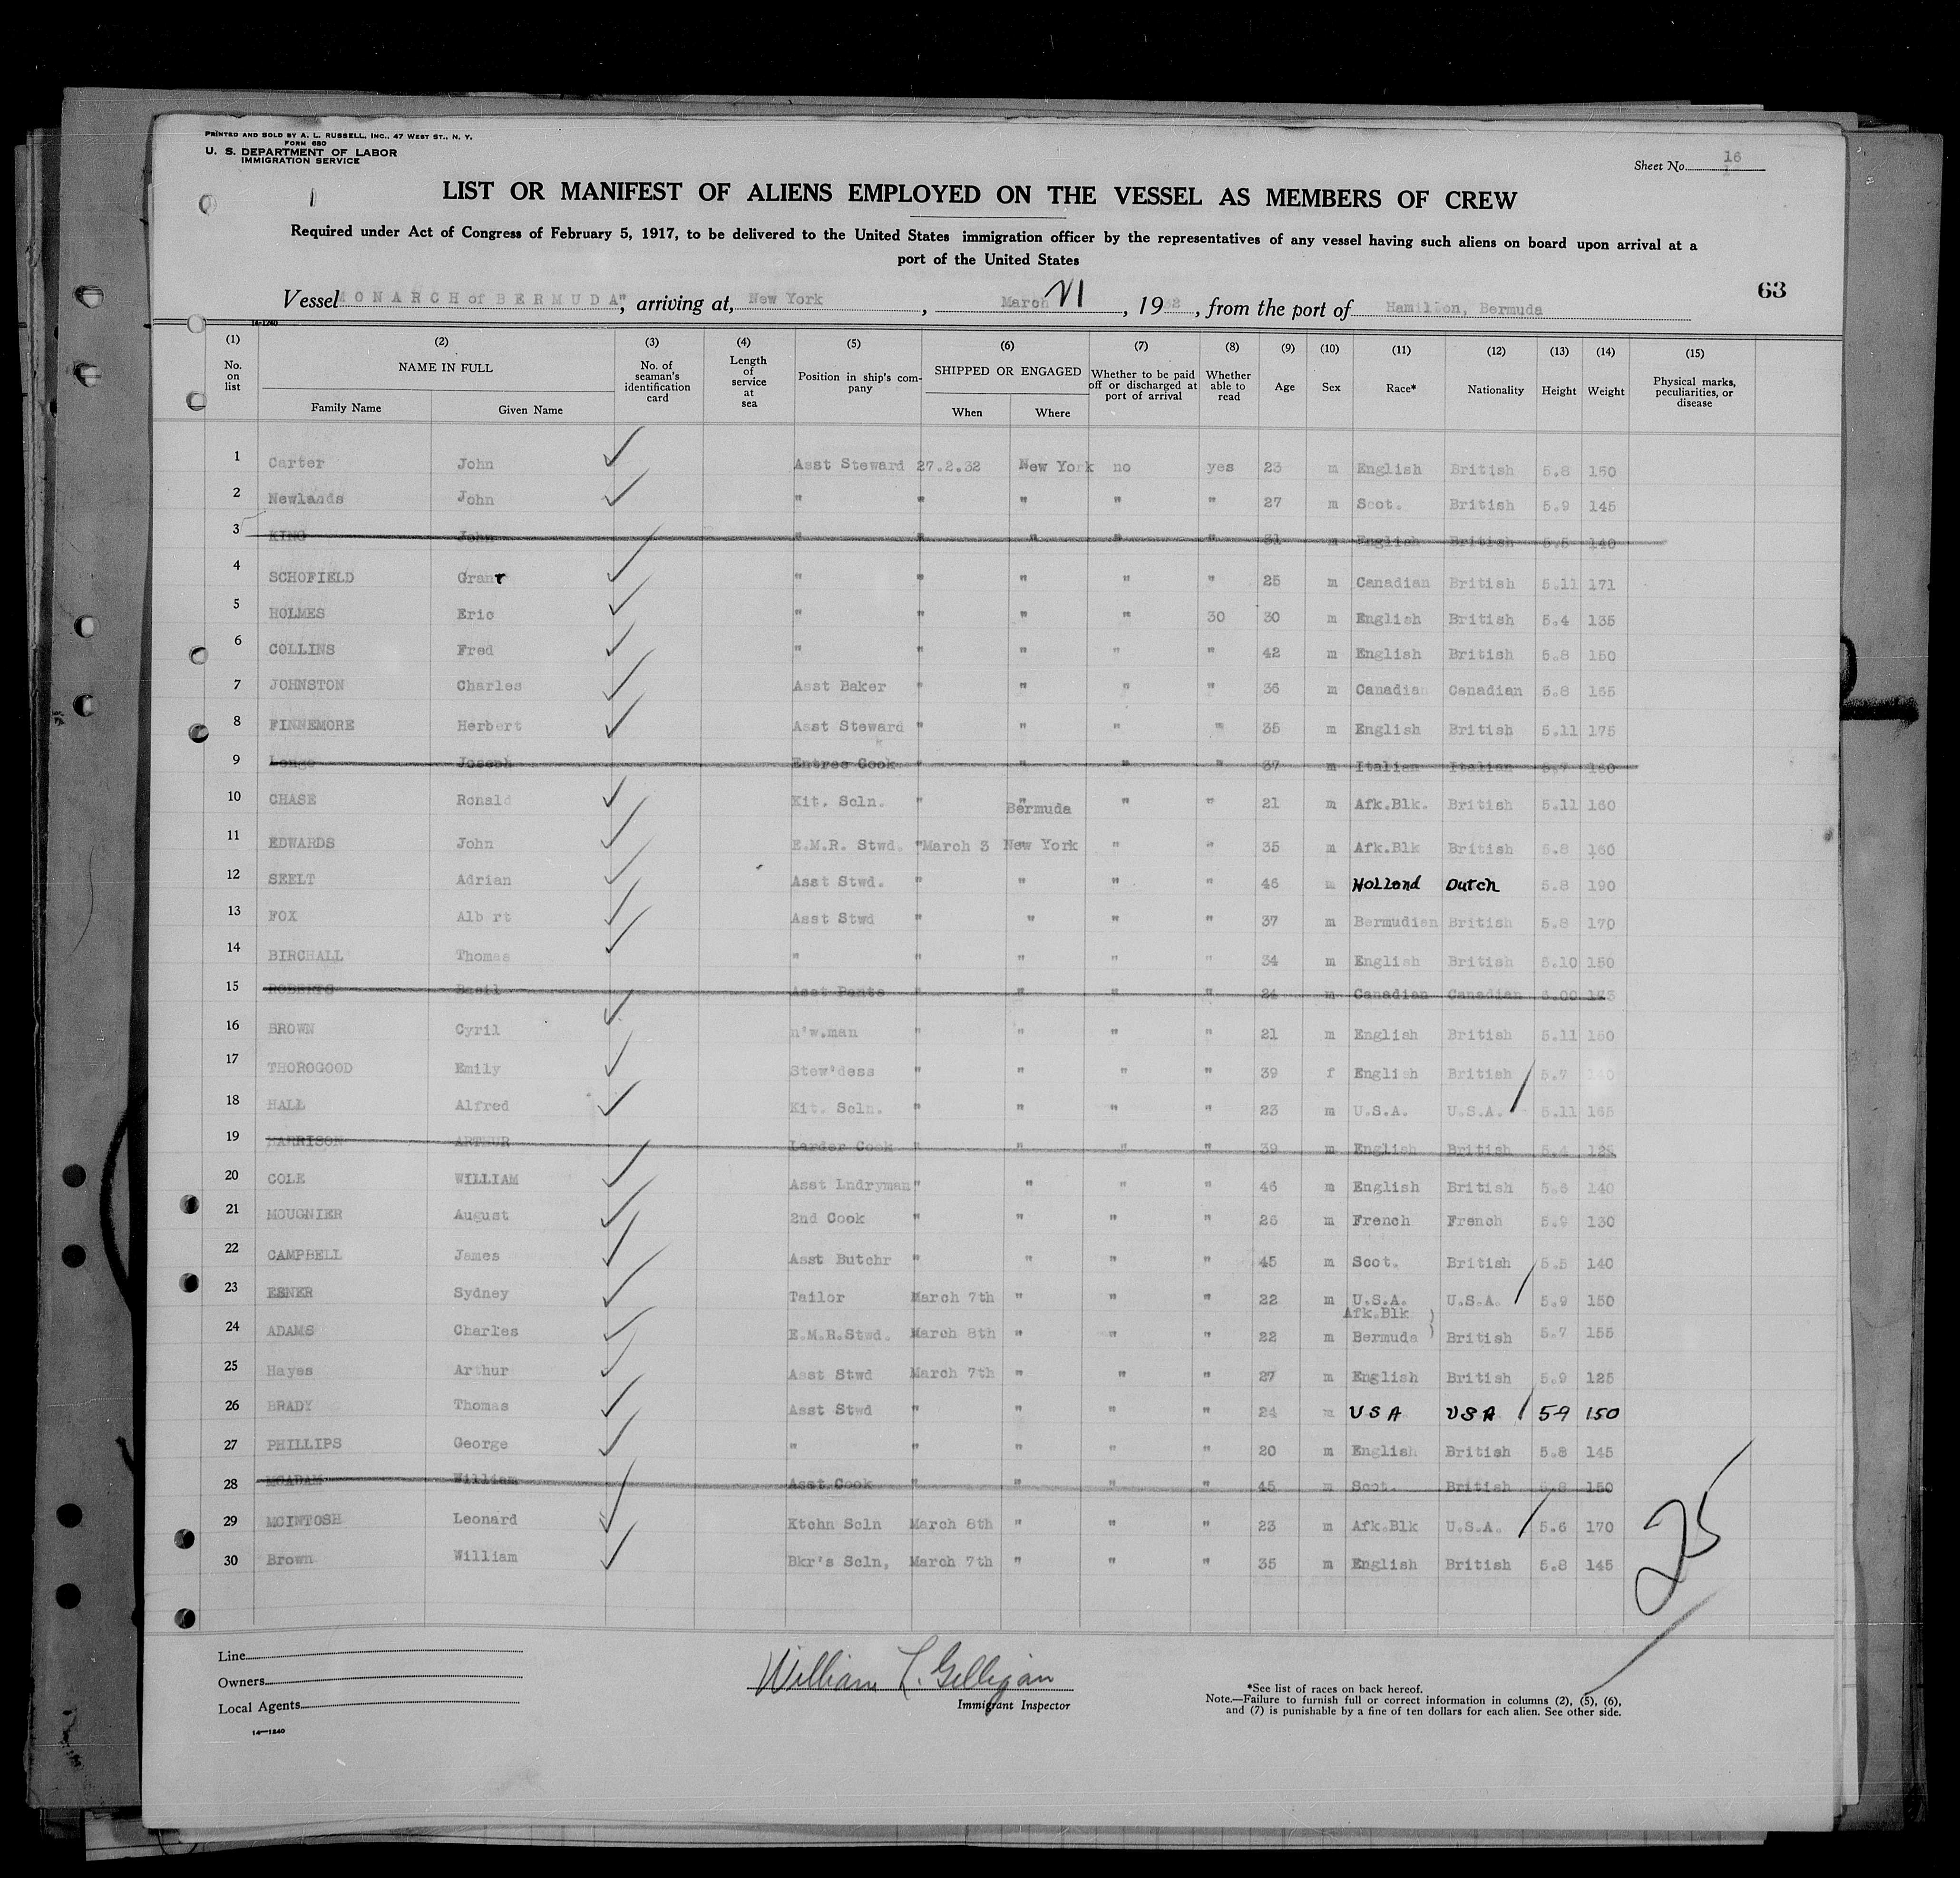 PRINTED AND SOLD BY A. L. RUSSELL, INC., 47 WEST ST., N. Y.
FORM 680
U. S. DEPARTMENT OF LABOR
IMMIGRATION SERVICE
Sheet No. 16
LIST OR MANIFEST OF ALIENS EMPLOYED ON THE VESSEL AS MEMBERS OF CREW
Required under Act of Congress of February 5, 1917, to be delivered to the United States immigration officer by the representatives of any vessel having such aliens on board upon arrival at a
port of the United States
63
Vessel MONARCH of BERMUDA", arriving at, New York, March 11, 1932, from the port of Hamilton, Bermuda
14-1240
(1) (2) (3) (4) (5) (6) (7) (8) (9) (10) (11) (12) (13) (14) (15)
No. on list NAME IN FULL Family Name Given Name No. of seaman's identification card Length of service at sea Position in ship's company SHIPPED OR ENGAGED When Where Whether to be paid off or discharged at port of arrival Whether able to read Age Sex Race* Nationality Height Weight Physical marks, peculiarities, or disease
1 Carter John Asst Steward 27.2.32 New York no yes 23 m English British 5.8 150
2 Newlands John " " " " " 27 m Scot. British 5.9 145
3 KING John " " " " " 31 m English British 5.5 140
4 SCHOFIELD Grant " " " " " 25 m Canadian British 5.11 171
5 HOLMES Eric " " " " 30 30 m English British 5.4 135
6 COLLINS Fred " " " " " 42 m English British 5.8 150
7 JOHNSTON Charles Asst Baker " " " " 36 m Canadian Canadian 5.8 165
8 FINNEMORE Herbert Asst Steward " " " " 35 m English British 5.11 175
9 Joseph Entree Cook " " " " 37 m Italian Italian 5.7 160
10 CHASE Ronald Kit. Scln. " " Bermuda " " 21 m Afk.Blk. British 5.11 160
11 EDWARDS John E.M.R. Stwd. "March 3 New York " " 35 m Afk.Blk British 5.8 160
12 SEELT Adrian Asst Stwd. " " " " 46 m Holland Dutch 5.8 190
13 FOX Alb rt Asst Stwd " " " " 37 m Bermudian British 5.8 170
14 BIRCHALL Thomas " " " " " 34 m English British 5.10 150
15 ROBERTS Basil Asst Pants " " " " 24 m Canadian Canadian 6.00 173
16 BROWN Cyril n'w.man " " " " 21 m English British 5.11 150
17 THOROGOOD Emily Stew'dess " " " " 39 f English British 5.7 140
18 HALL Alfred Kit. Scln. " " " " 23 m U.S.A. U.S.A. 5.11 165
19 HARRISON ARTHUR Larder Cook " " " " 39 m English British 5.4 125
20 COLE WILLIAM Asst Lndryman " " " " 46 m English British 5.6 140
21 MOUGNIER August 2nd Cook " " " " 26 m French French 5.9 130
22 CAMPBELL James Asst Butchr " " " " 45 m Scot. British 5.5 140
23 ESNER Sydney Tailor March 7th " " " 22 m U.S.A. U.S.A. 5.9 150
24 ADAMS Charles E.M.R.Stwd. March 8th " " " 22 m Afk.Blk Bermuda British 5.7 155
25 Hayes Arthur Asst Stwd March 7th " " " 27 m English British 5.9 125
26 BRADY Thomas Asst Stwd " " " " 24 m USA USA 59 150
27 PHILLIPS George " " " " " 20 m English British 5.8 145
28 MCADAM William Asst Cook " " " " 45 m Scot. British 5.8 150
29 MCINTOSH Leonard Ktchn Scln March 8th " " " 23 m Afk.Blk U.S.A. 5.6 170
30 Brown William Bkr's Scln, March 7th " " " 35 m English British 5.8 145
25
Line
Owners
Local Agents
14-1240
William L. Gelligan
Immigrant Inspector
*See list of races on back hereof.
Note.—Failure to furnish full or correct information in columns (2), (5), (6),
and (7) is punishable by a fine of ten dollars for each alien. See other side.